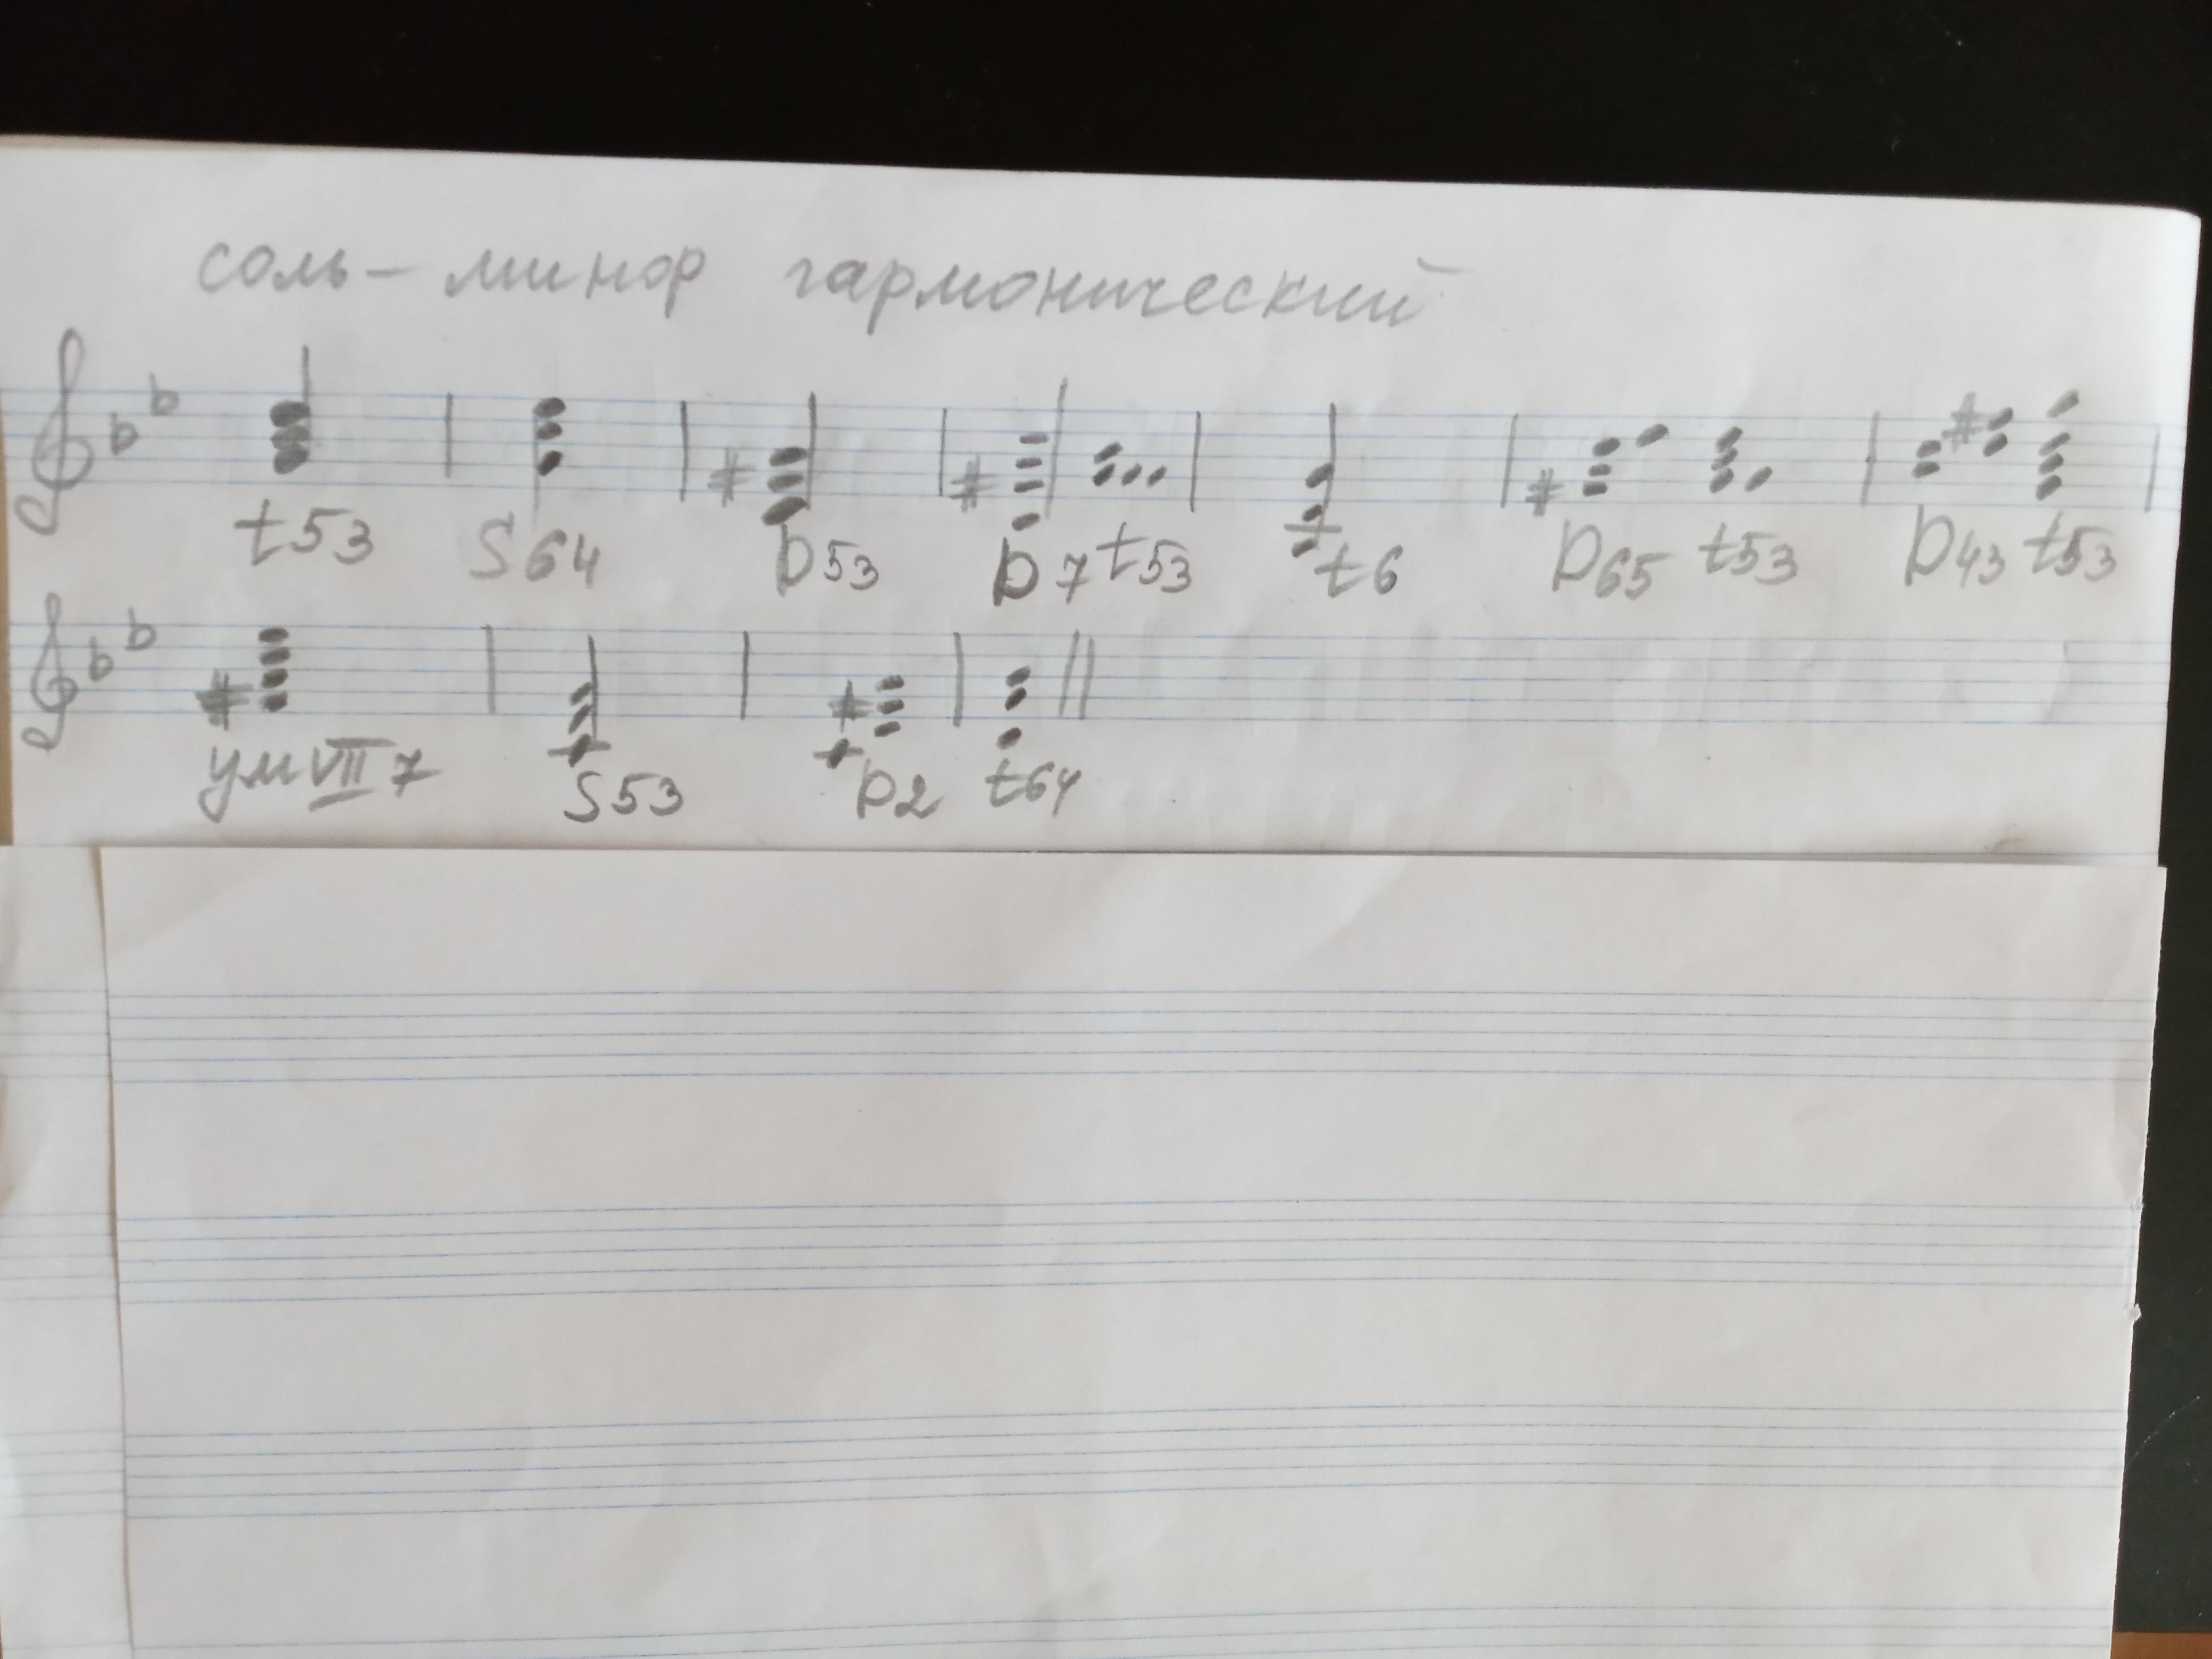 соль – минор гармонический
t53 S64 D53 D7 t53 t6 D65 t53 D43 t53
умVII7 S53 D2 t64